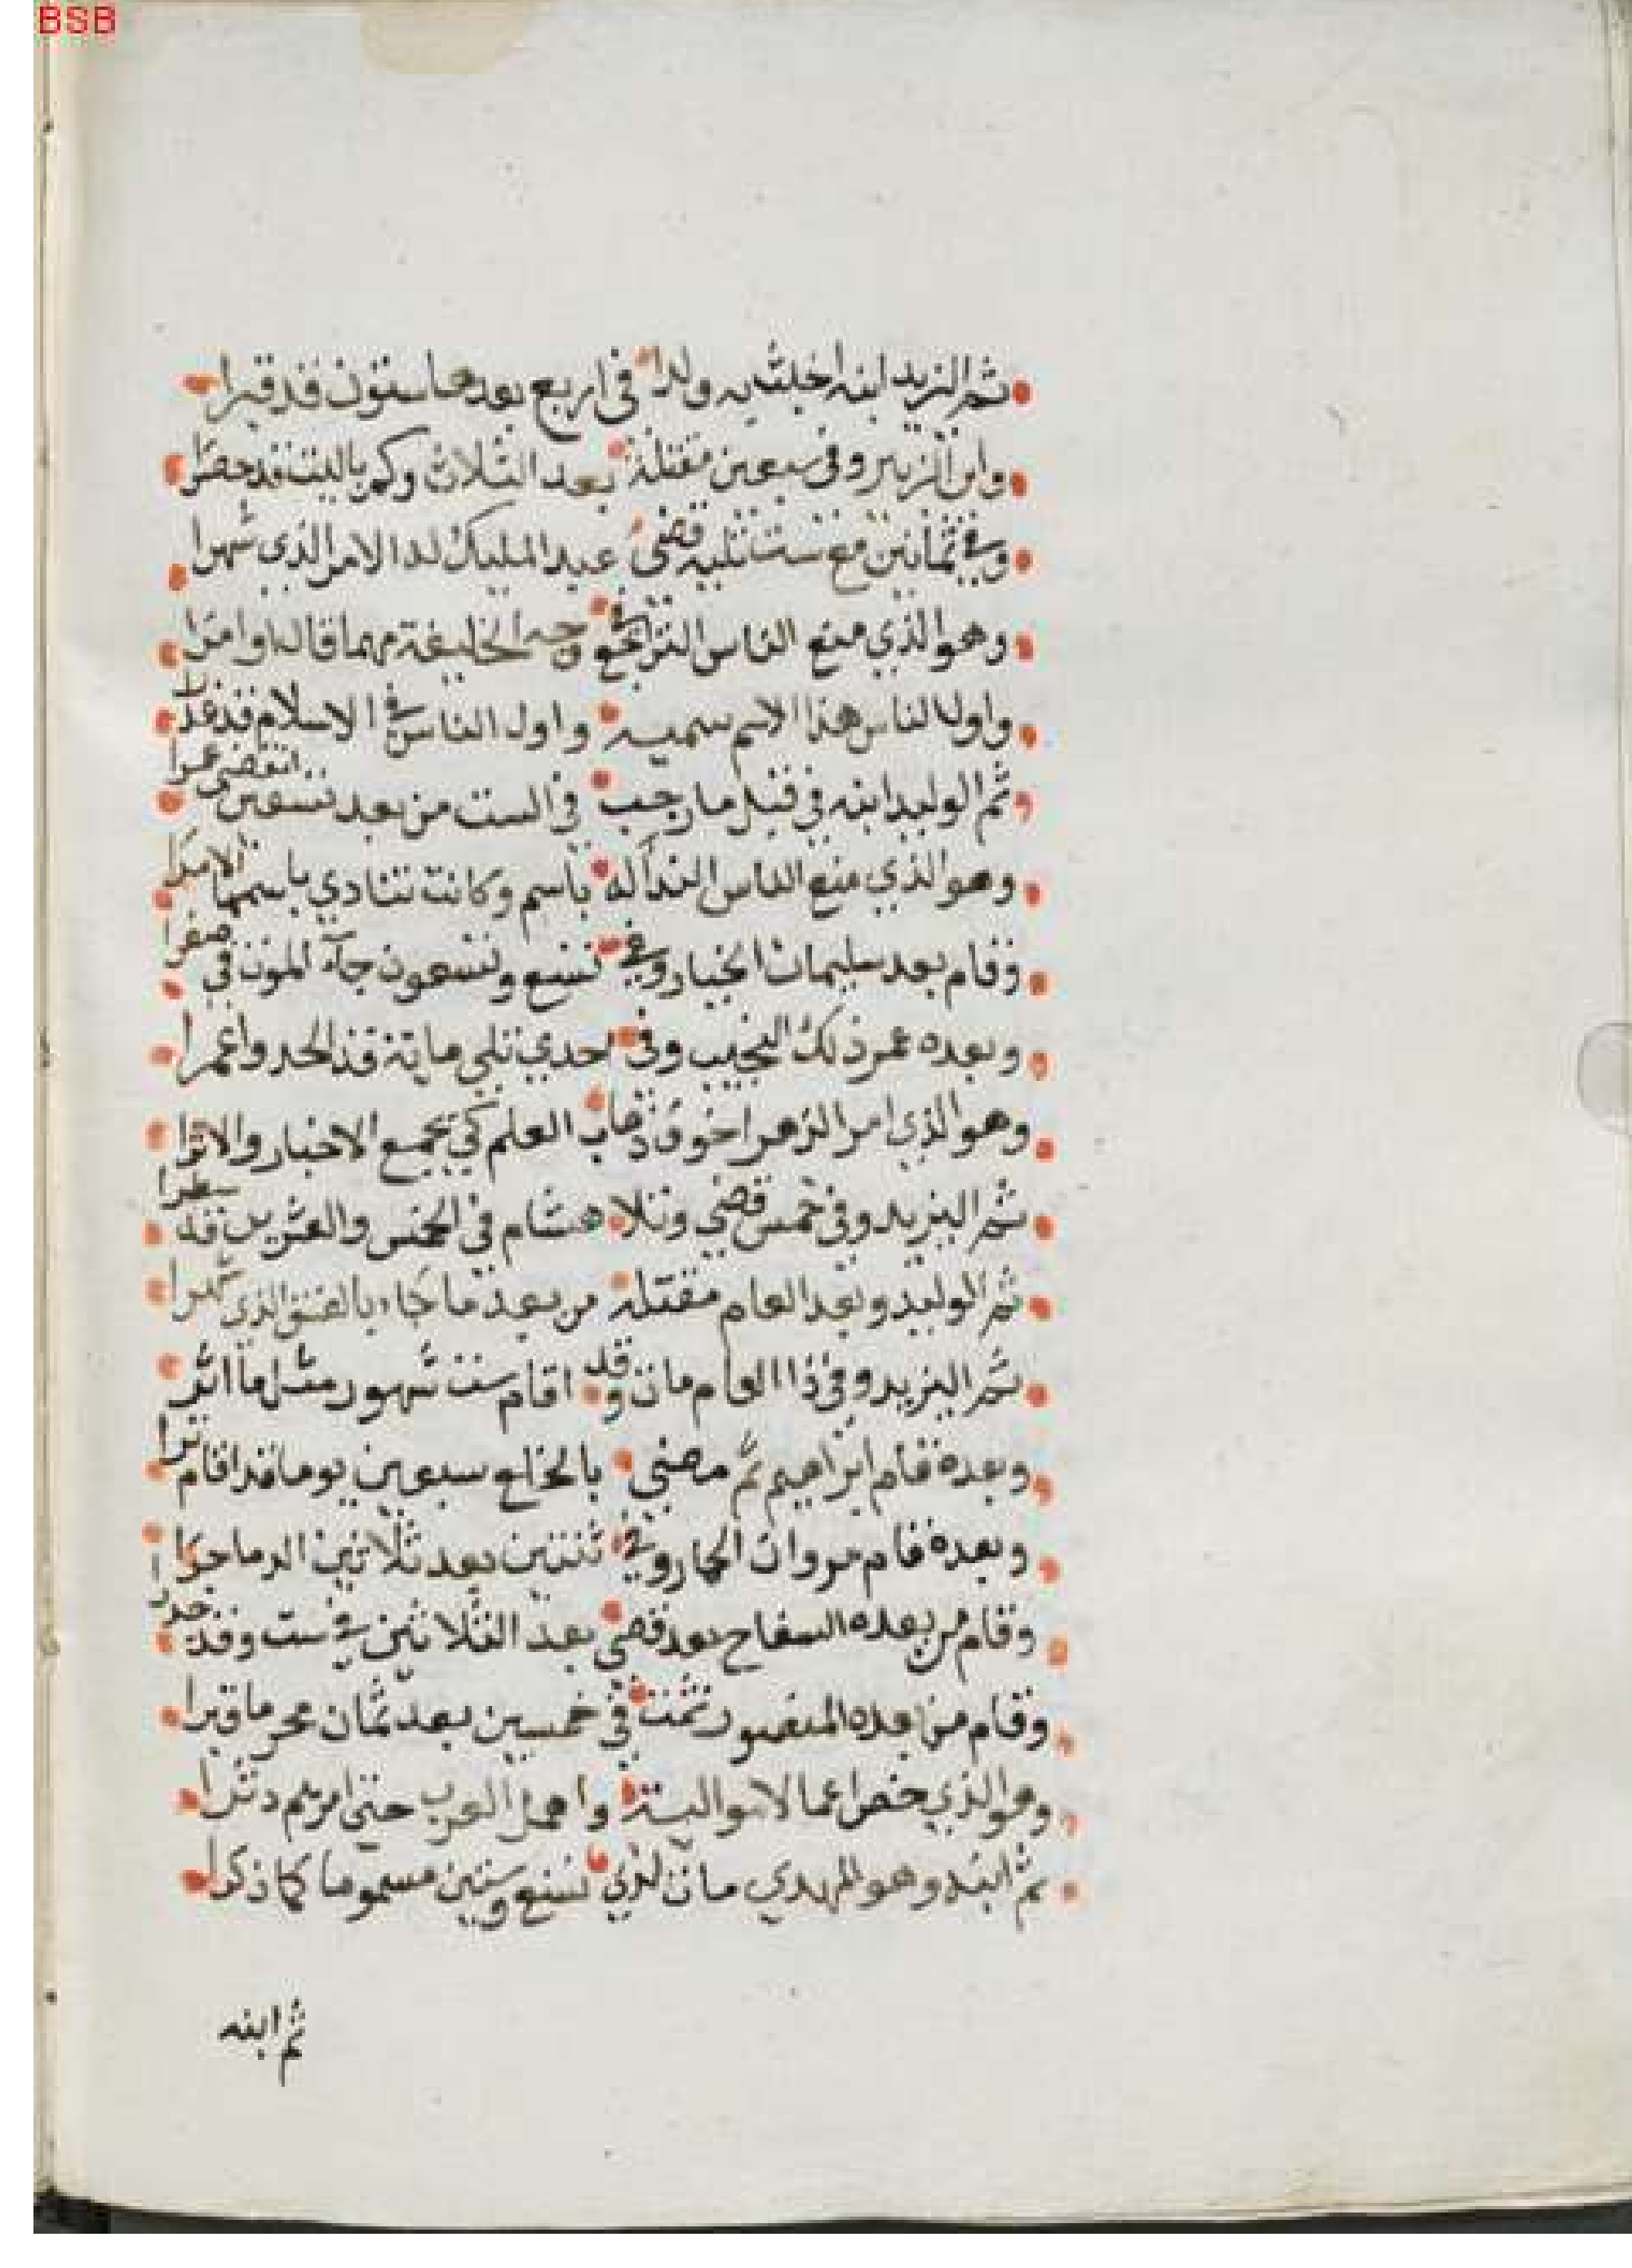 BSB
ثم اليزيد ابنه اخبث به ولدا في اربع بعدها ستون قد قبرا
وابن الزبير وفي سبعين مقتله بعد الثلاث وكم بالبيت قد حصرا
وفي ثمانين مع ست تليه قضي عبد المليك له الامر الذي شهرا
وهو الذي منع الناس التراجع في وجه الخليفة مهما قال او امرا
واول الناس هذا الاسم سميه واول الناس في الاسلام قد غدرا
ثم الوليد ابنه في قبل ما رجب في الست من بعد تسعين انقضي عمرا
وهو الذي منع الناس النداء له باسم وكانت تنادي باسمها الامرا
وقام بعد سليمان الخيار وفي تسع وتسعون جآء الموت في صفرا
وبعده عمر ذلك النجيب وفي احدي تلي ماية قد الحدوا عمرا
وهو الذي امر الزهر اخوف ذهاب العلم كي يجمع الاخبار والاثرا
ثم اليزيد وفي خمس قضي وتلا هشام في الخمس والعشرين قد سطرا
ثم الوليد وبعد العام مقتله من بعد ما جاء بالفسق الذي شهرا
ثم اليزيد وفي ذا العام مات وقد اقام ست شهور مثل ما اثرا
وبعده قام ابراهيم ثم مضي بالخلع سبعين يوما قد اقام ترا
وبعده قام مروان الحمار وفي ثنتين بعد ثلاثين الدما جرا
وقام من بعده السفاح بعد قضي بعد الثلاثين في ست وقد جدرا
وقام من بعده المنصور ثمت في خمسين بعد ثمان محرما قبرا
وهو الذي خص اعمالا مواليه واهمل العرب حتي امرهم دثرا
ثم ابنه وهو المهدي مات لذي تسع وستين مسموما كما ذكرا
ثم ابنه